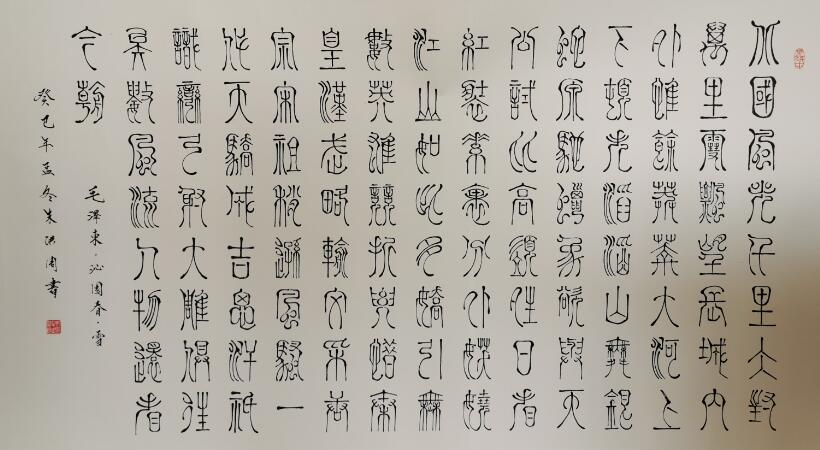 北國風光千里冰封
萬里雪飄望長城內
外惟餘莽莽大河上
下頓失滔滔山舞銀
蛇原馳蠟象欲與天
公試比高須晴日看
紅裝素裹分外妖嬈
江山如此多嬌引無
數英雄競折腰惜秦
皇漢武略輸文采唐
宗宋祖稍遜風騷一
代天驕成吉思汗只
識彎弓射大雕俱往
矣數風流人物還看
今朝
毛澤東·沁園春·雪
癸巳年孟冬朱洪周書